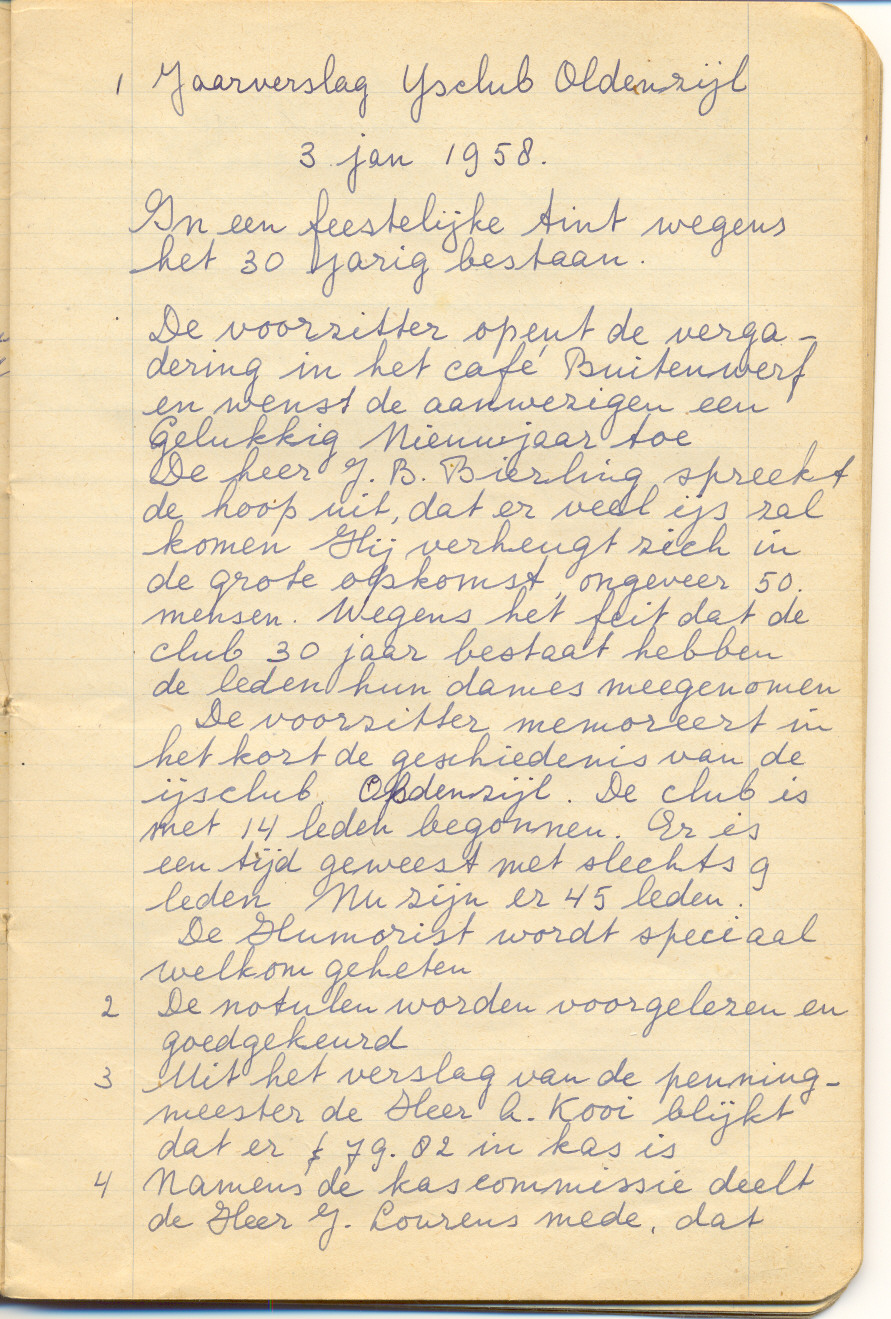 1 Jaarverslag Ysclub Oldenzijl
3 jan 1958.
In een feestelijke tint wegens
het 30 jarig bestaan.
De voorzitter opent de verga-
dering in het café Buitenwerf
en wenst de aanwezigen een
Gelukkig Nieuwjaar toe
De heer J. B. Bierling spreekt
de hoop uit, dat er veel ijs zal
komen Hij verheugt zich in
de grote opkomst, ongeveer 50.
mensen. Wegens het feit dat de
club 30 jaar bestaat hebben
de leden hun dames meegenomen
De voorzitter memoreert in
het kort de geschiedenis van de
ijsclub. Oldenzijl. De club is
met 14 leden begonnen. Er is
een tijd geweest met slechts 9
leden Nu zijn er 45 leden.
De Humorist wordt speciaal
welkom geheten
2 De notulen worden voorgelezen en
goedgekeurd
3 Uit het verslag van de penning-
meester de Heer Kooi blijkt
dat er f 79.82 in kas is
4 Namens de kascommissie deelt
de Heer Lourens mede, dat